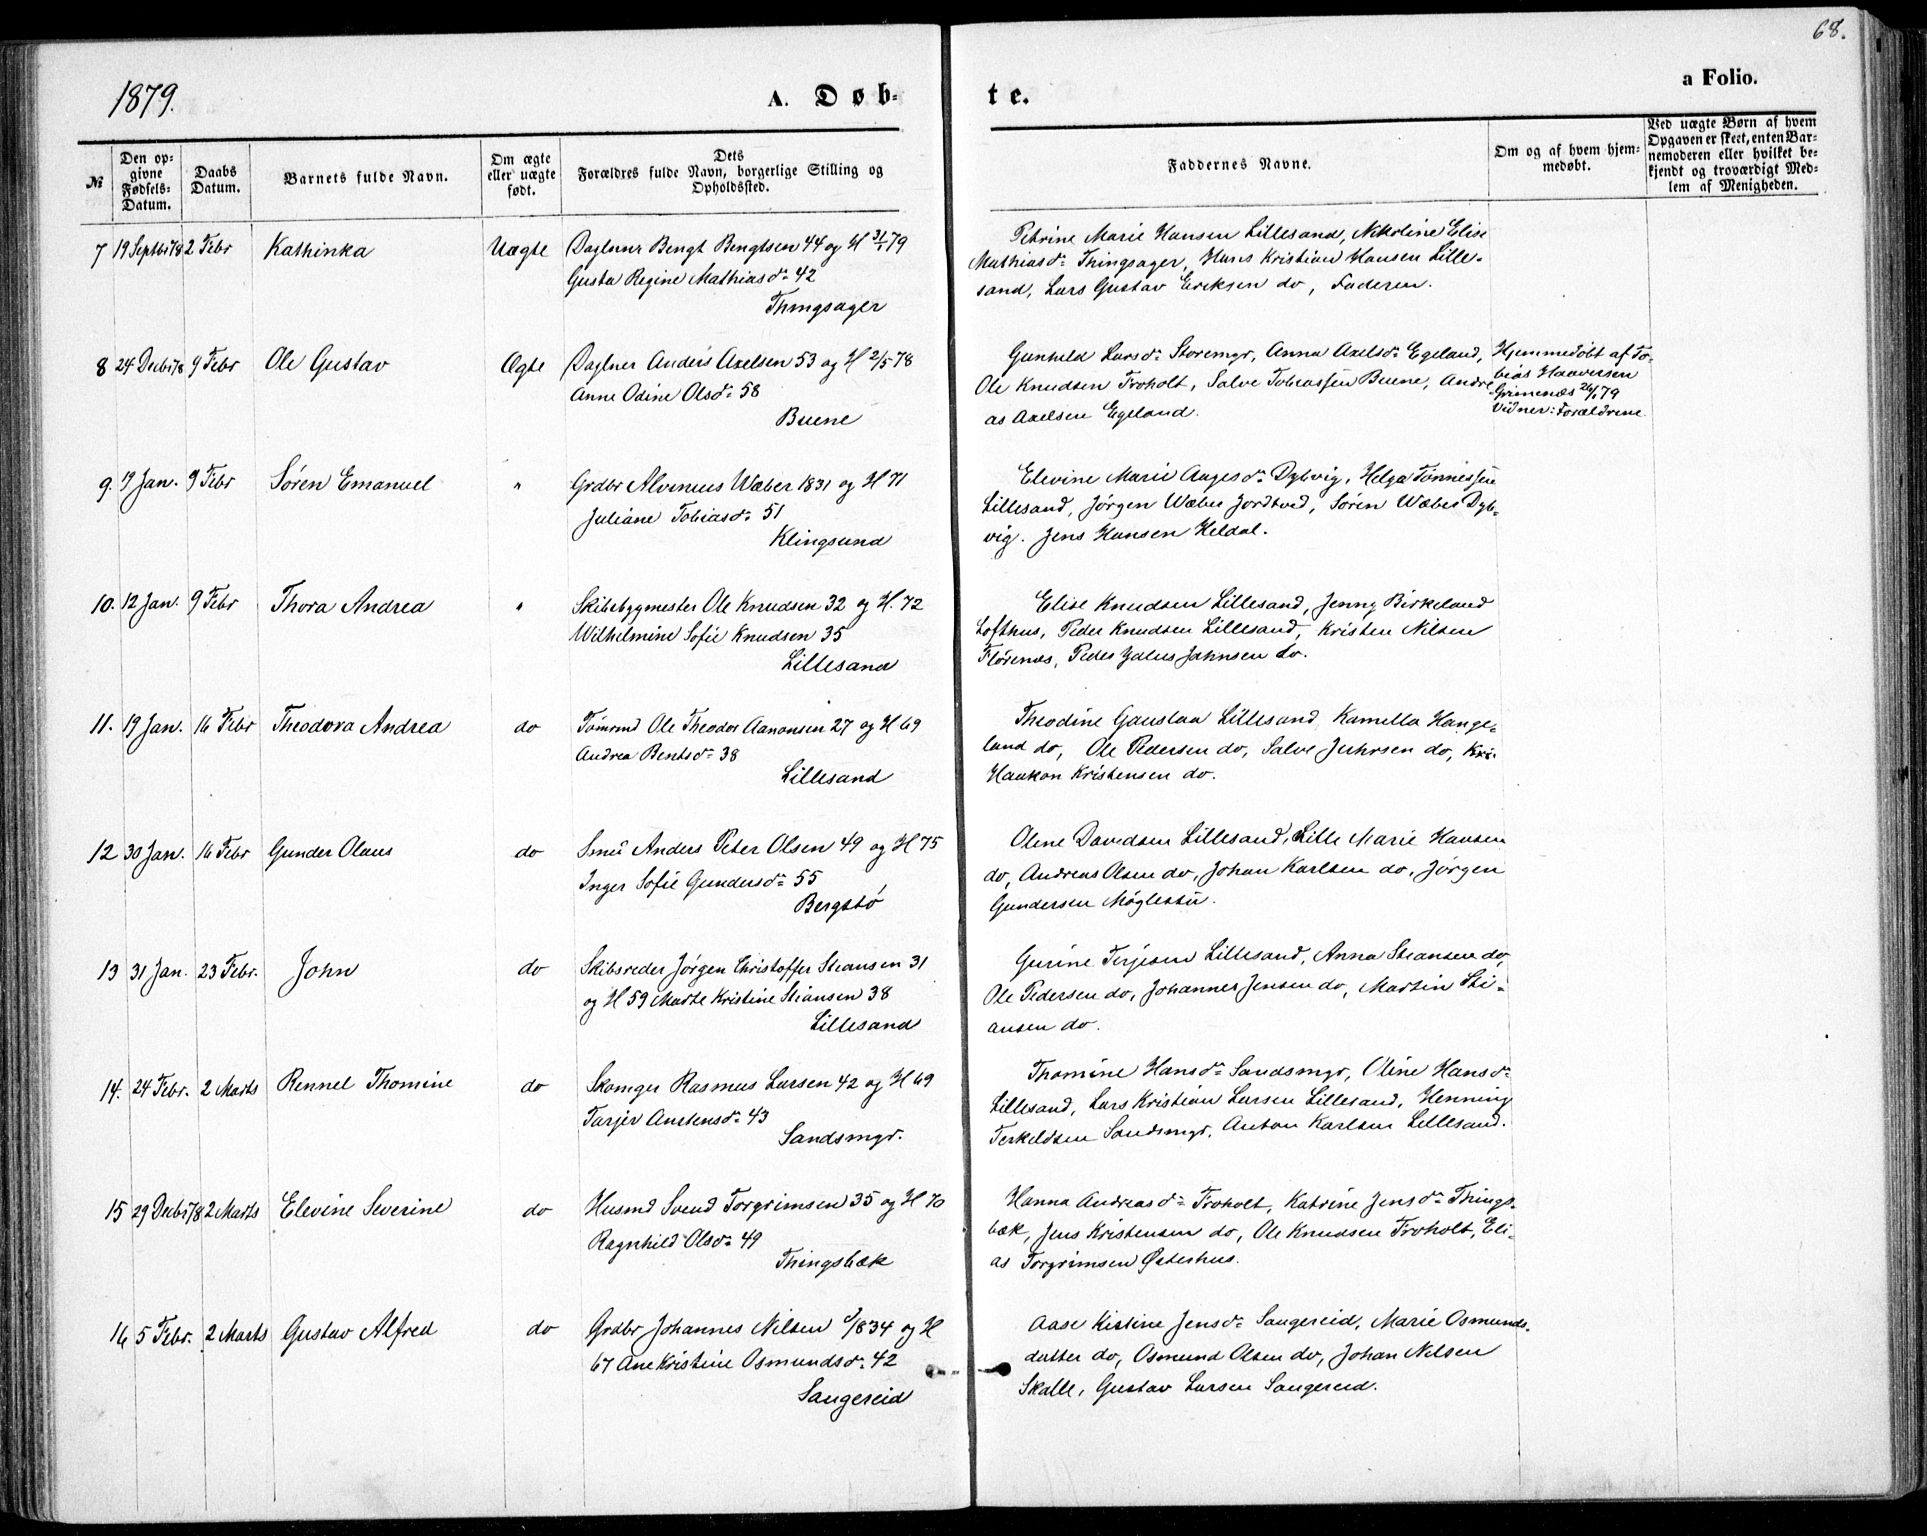 68.
1879.
A. Døb-
te.
a Folio.
№
Den op-
givne
Fødsels-
Datum.
Daabs
Datum.
Barnets fulde Navn.
Om ægte
eller uægte
født.
Dets
Forældres fulde Navn, borgerlige Stilling og
Opholdssted.
Faddernes Navne.
Om og af hvem hjem-
medøbt.
Ved uægte Børn af hvem
Opgaven er skeet, enten Bar-
nemoderen eller hvilket be-
kjendt og troværdigt Med-
lem af Menigheden.
7 19 Septbr 78 2 Febr Kathinka Uægte Daglnnr Bengt Bengtsen 44 og H 31/1 79
Gusta Regine Mathiasd: 42
Thingsager
Petrine Marie Hansen Lillesand, Nikoline Elise
Mathiasd: Thingsager, Hans Kristian Hansen Lille-
sand, Lars Gustav Eriksen do, Faderen.
8 24 Decbr 78 9 Febr Ole Gustav Ægte Daglner Anders Axelsen 53 og H 2/5 78
Anne Odine Olsd: 58
Buene
Gunhild Larsd: Storemgr, Anna Axelsd: Egeland,
Ole Knudsen Troholt, Salve Tobiassen Buene, Andre-
as Axelsen Egeland.
Hjemmedøbt af To-
bias Haaversen
Grimenæs 26/1 79
Vidner: Forældrene
9. 7 Jan. 9 Febr Søren Emanuel " Grdbr Alvinius Wæber 1831 og H 71
Juliane Tobiasd: 51
Klingsund
Elevine Marie Aagesd: Dybvig, Helga Tønnessen
Lillesand, Jørgen Wæber Jordtved, Søren Wæber Dyb-
vig. Jens Hansen Heldal.
10. 12 Jan. 9 Febr Thora Andrea " Skibsbygmester Ole Knudsen 32 og H. 72
Wilhelmine Sofie Knudsen 35
Lillesand
Elise Knudsen Lillesand, Jenny Birkeland
Lofthus, Peder Knudsen Lillesand, Kristen Nilsen
Flørenæs, Peder Julius Jahnsen do.
11. 19 Jan. 16 Febr Theodora Andrea do Tømrmd Ole Theodor Aanonsen 27 og H 69
Andrea Bentsd: 38
Lillesand
Theodine Gaustaa Lillesand Kamilla Hange-
land do, Ole Pedersen do, Salve Juhrsen do,
Haakon Kristensen do.
12 30 Jan. 16 Febr Gunder Olaus do Smed Anders Peter Olsen 49 og H 75
Inger Sofie Gundersd: 55
Bergstø
Oline Davidsen Lillesand, Lille Marie Hansen
do, Andreas Olsen do, Johan Karlsen do, Jørgen
Gundersen Møglestu.
13 31 Jan. 23 Febr. John do Skibsreder Jørgen Christoffer Stiansen 31
og H 59 Marte Kristine Stiansen 38
Lillesand
Gurine Terjesen Lillesand, Anna Stiansen do,
Ole Pedersen do, Johannes Jensen do, Martin Sti-
ansen do.
14. 24 Febr. 2 Marts Rennel Thomine do Skomger Rasmus Larsen 42 og H 69
Tarjer Anstensd: 43
Sandsmgr.
Thomine Hansd: Sandsmgr, Oline Hansd:
Lillesand, Lars Kristian Larsen Lillesand, Henning
Terkeldsen Sandsmgr, Anton Karlsen Lillesand.
15 29 Decbr 78 2 Marts Elevine Severine do Husmd Svend Torgrimsen 35 og H 70
Ragnhild Olsd: 49
Thingsbæk
Hanna Andreasd: Troholt, Katrine Jensd: Things-
bæk, Jens Kristensen do, Ole Knudsen Troholt, Eli-
as Torgrimsen Østerhus.
16 5 Febr. 2 Marts Gustav Alfred do Grdbr Johannes Nilsen 1834 og H
67 Ane Kristine Osmundsd: 42
Sangereid
Aase Kistine Jensd: Sangereid, Marie Osmunds-
datter do, Osmund Olsen do, Johan Nilsen
Skalle, Gustav Larsen Sangereid.